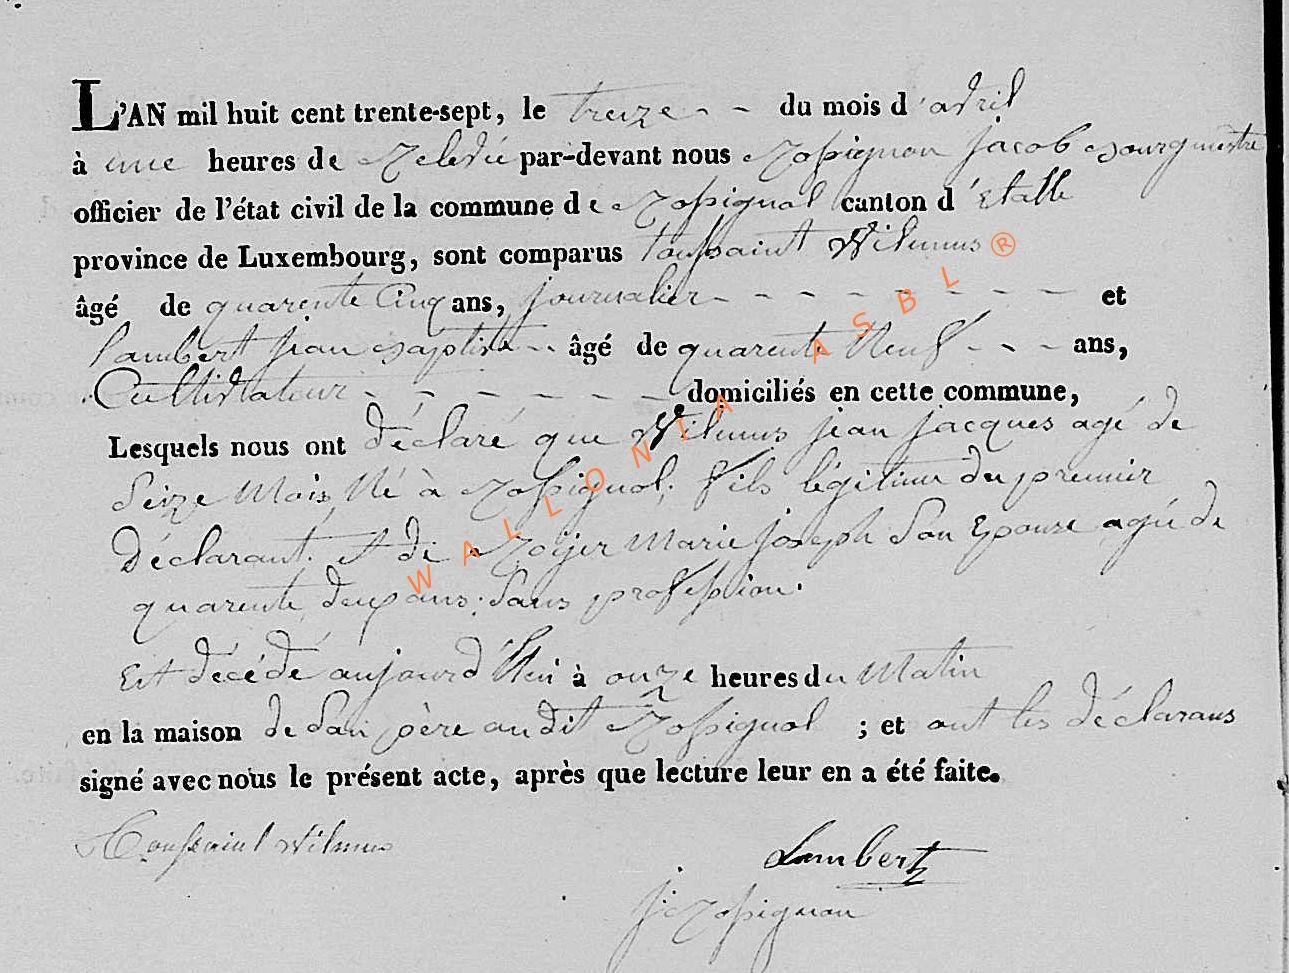 L'AN mil huit cent trente-sept, le treize du mois d'avril
à une heures de relevée par-devant nous Rossignon jacob Bourgmestre
officier de l'état civil de la commune de Rossignol canton d'Etalle
province de Luxembourg, sont comparus toussaint Wilmus
âgé de quarente Cinq ans, journalier et
Lambert jean Baptiste âgé de quarente Neuf ans,
Cultivateur domiciliés en cette commune,
Lesquels nous ont déclaré que Wilmus jean jacques agé de
Seize Mois Né à Rossignol. fils légitime du premier
Déclarant. et de Roijer Marie joseph Son Epouse agée de
quarente deux ans. Sans profession.
Est décédé aujourd'hui à onze heures du Matin
en la maison de Son père audit Rossignol ; et ont les déclarans
signé avec nous le présent acte, après que lecture leur en a été faite.
Toussaint Wilmus
Lambert
j: Rossignon
WALLONIA ASBL ®